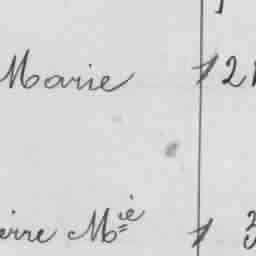 Marie 12
erre M^ie 1 3